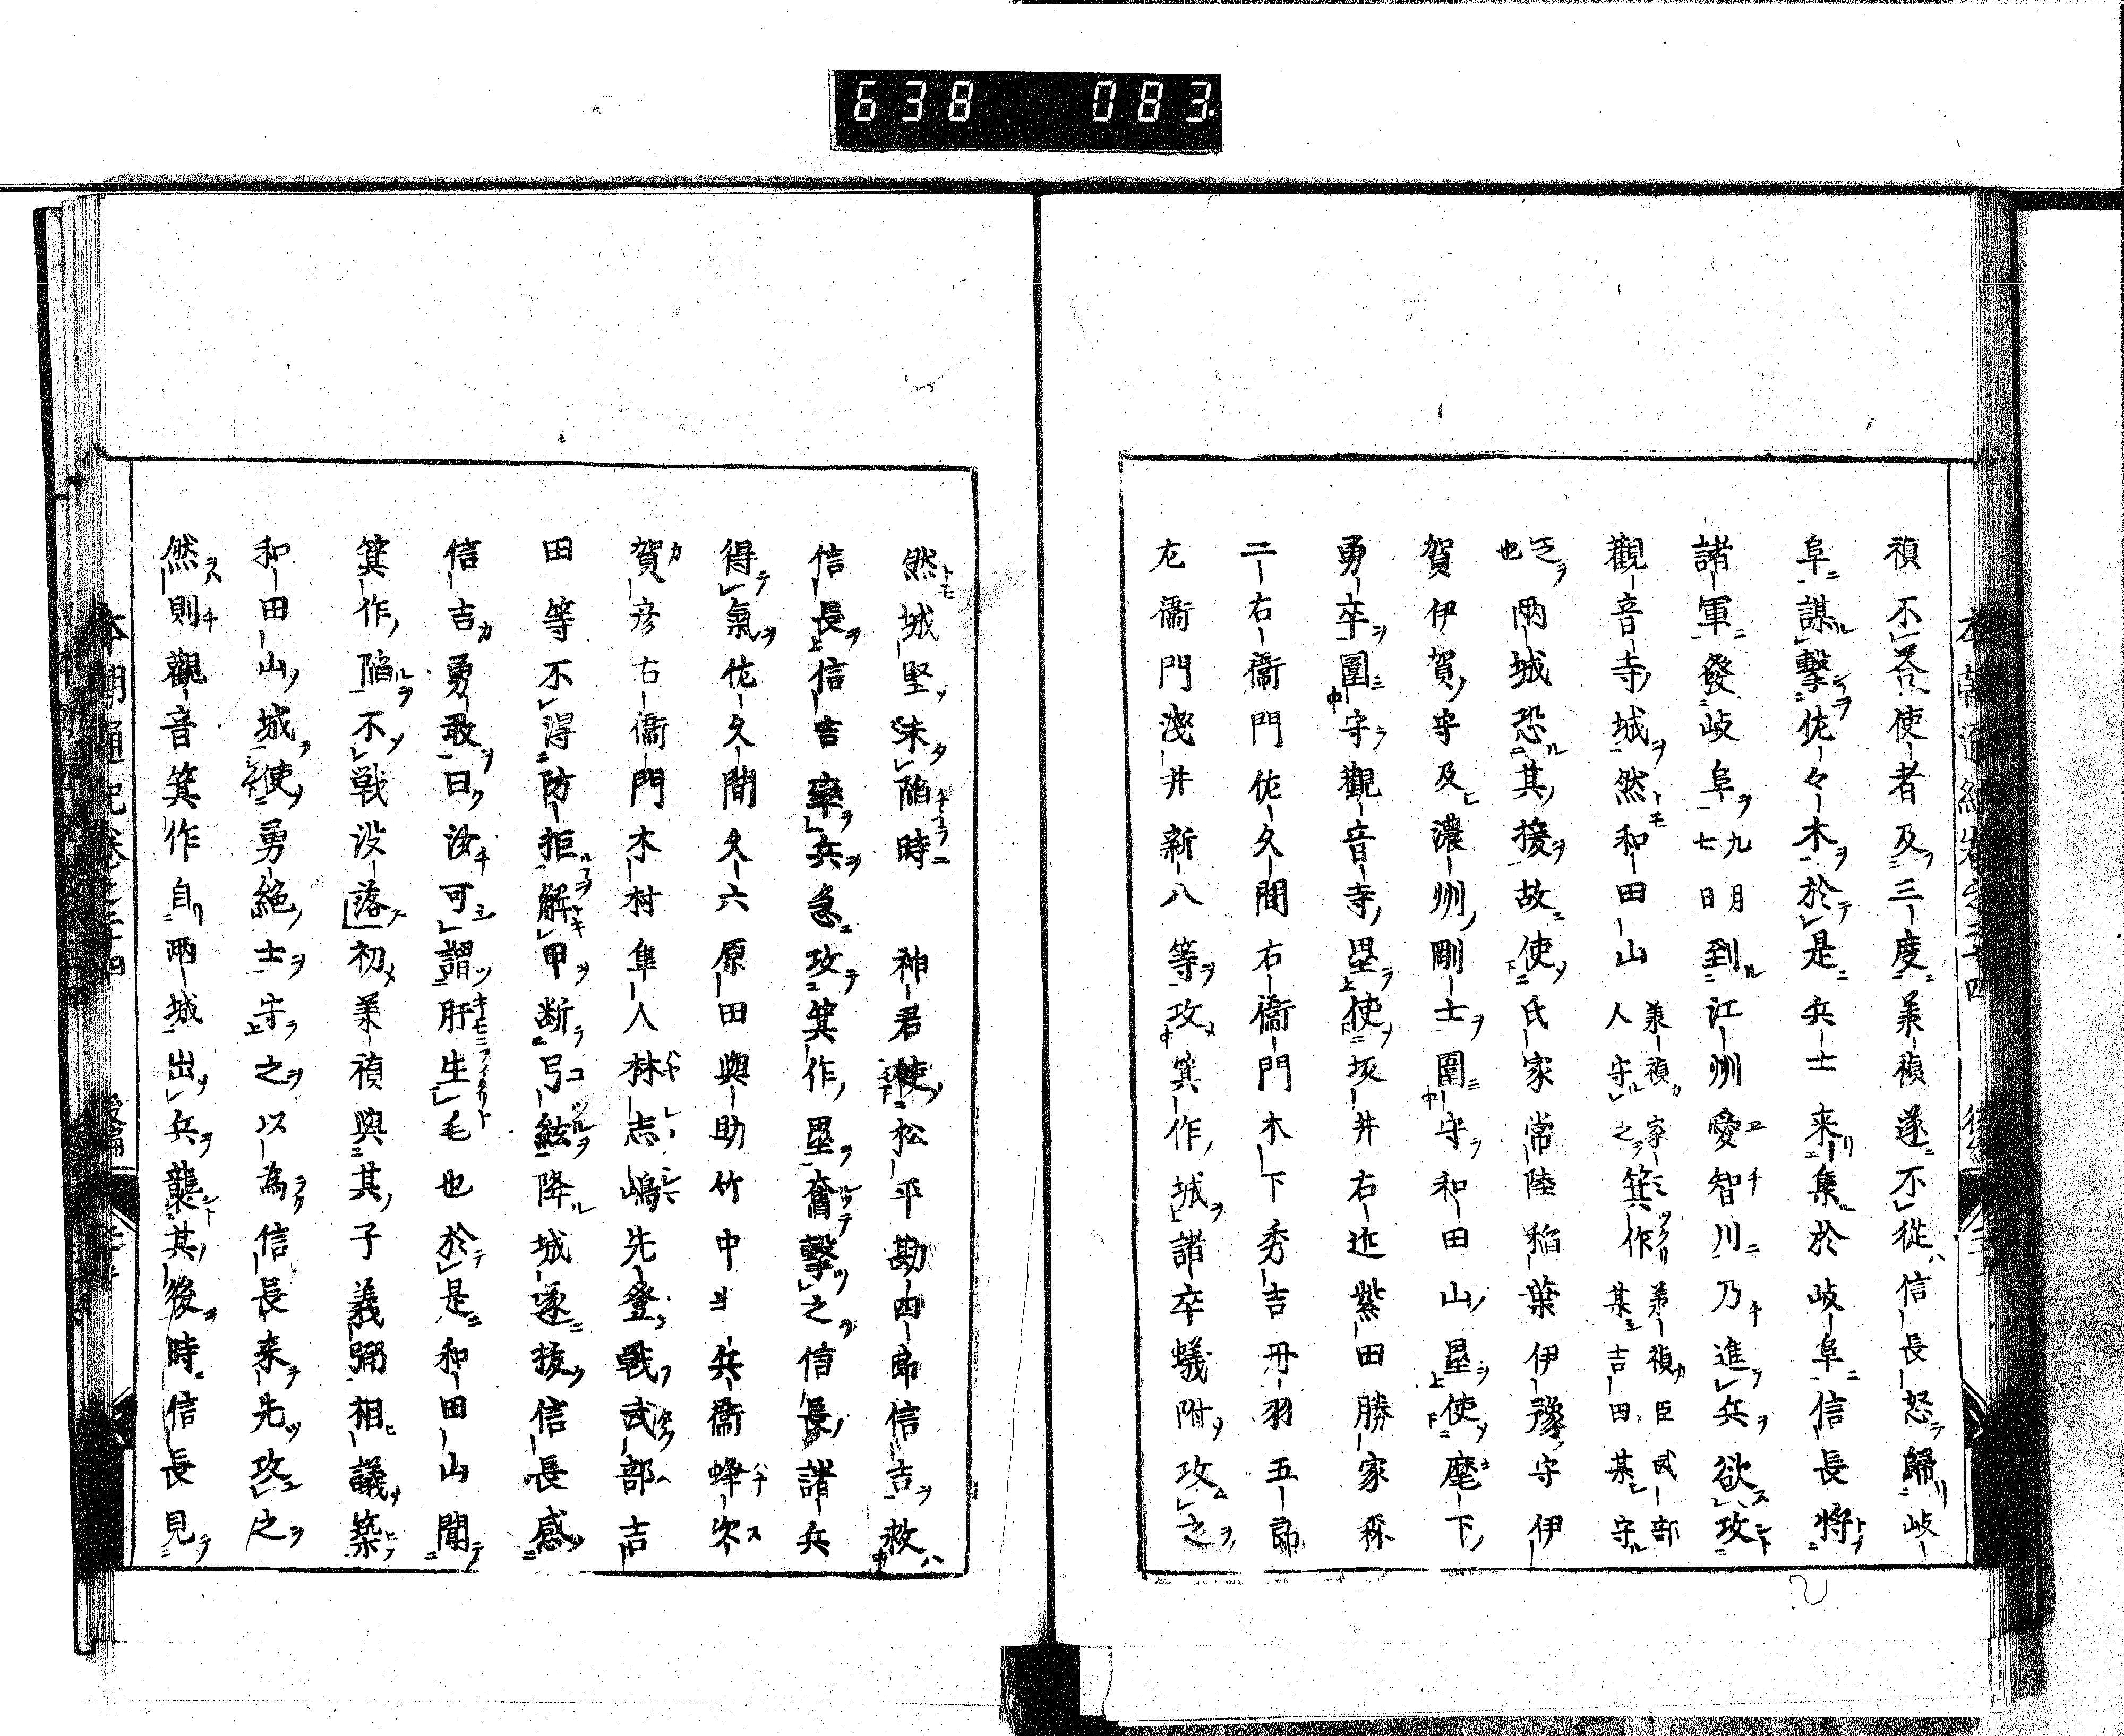 638 083
禎不答使者及三度承禎遂不從信長怒歸岐
阜謀擊佐々木於是兵士来集於岐阜信長將
諸軍發岐阜九月七日到江州愛智川乃進兵欲攻
觀音寺城然和田山承禎家人守之箕作承禎臣武部某吉田某守
之也兩城恐其援故使氏家常陸稲葉伊豫守伊
賀伊賀守及濃州剛士圍守和田山壘使麾下
勇卒圍守觀音寺壘使坂井右近柴田勝家森
二右衞門佐久間右衞門木下秀吉丹羽五郎
左衞門淺井新八等攻箕作城諸卒蟻附攻之
然城堅未陥時　神君使松平勘四郎信吉救
信長信吉率兵急攻箕作壘奮擊之信長諸兵
得氣佐久間久六原田與助竹中半兵衞蜂須
賀彦右衞門木村隼人林志嶋先登戦武部吉
田等不得防拒解甲断弓絃降城遂拔信長感
信吉勇敢曰汝可謂肝生毛也於是和田山聞
箕作陥不戦没落初承禎與其子義弼相議築
和田山城使勇絶士守之以為信長来先攻之
然則觀音箕作自兩城出兵襲其後時信長見
本朝通紀巻之二十四　後編